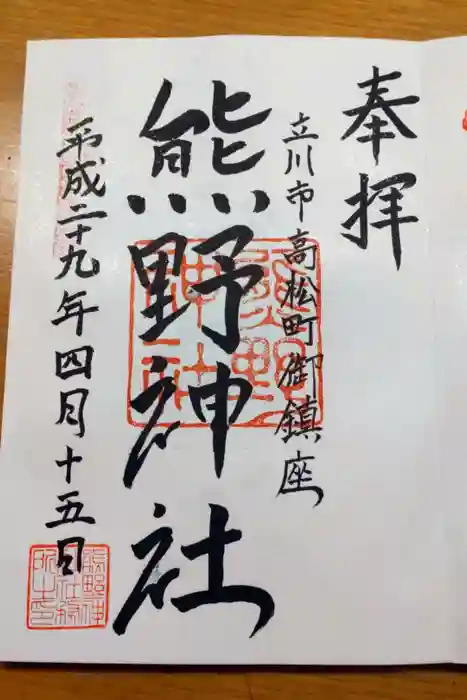 奉拝
立川市高松町御鎮座
熊野神社
熊野神社
平成二十九年四月十五日